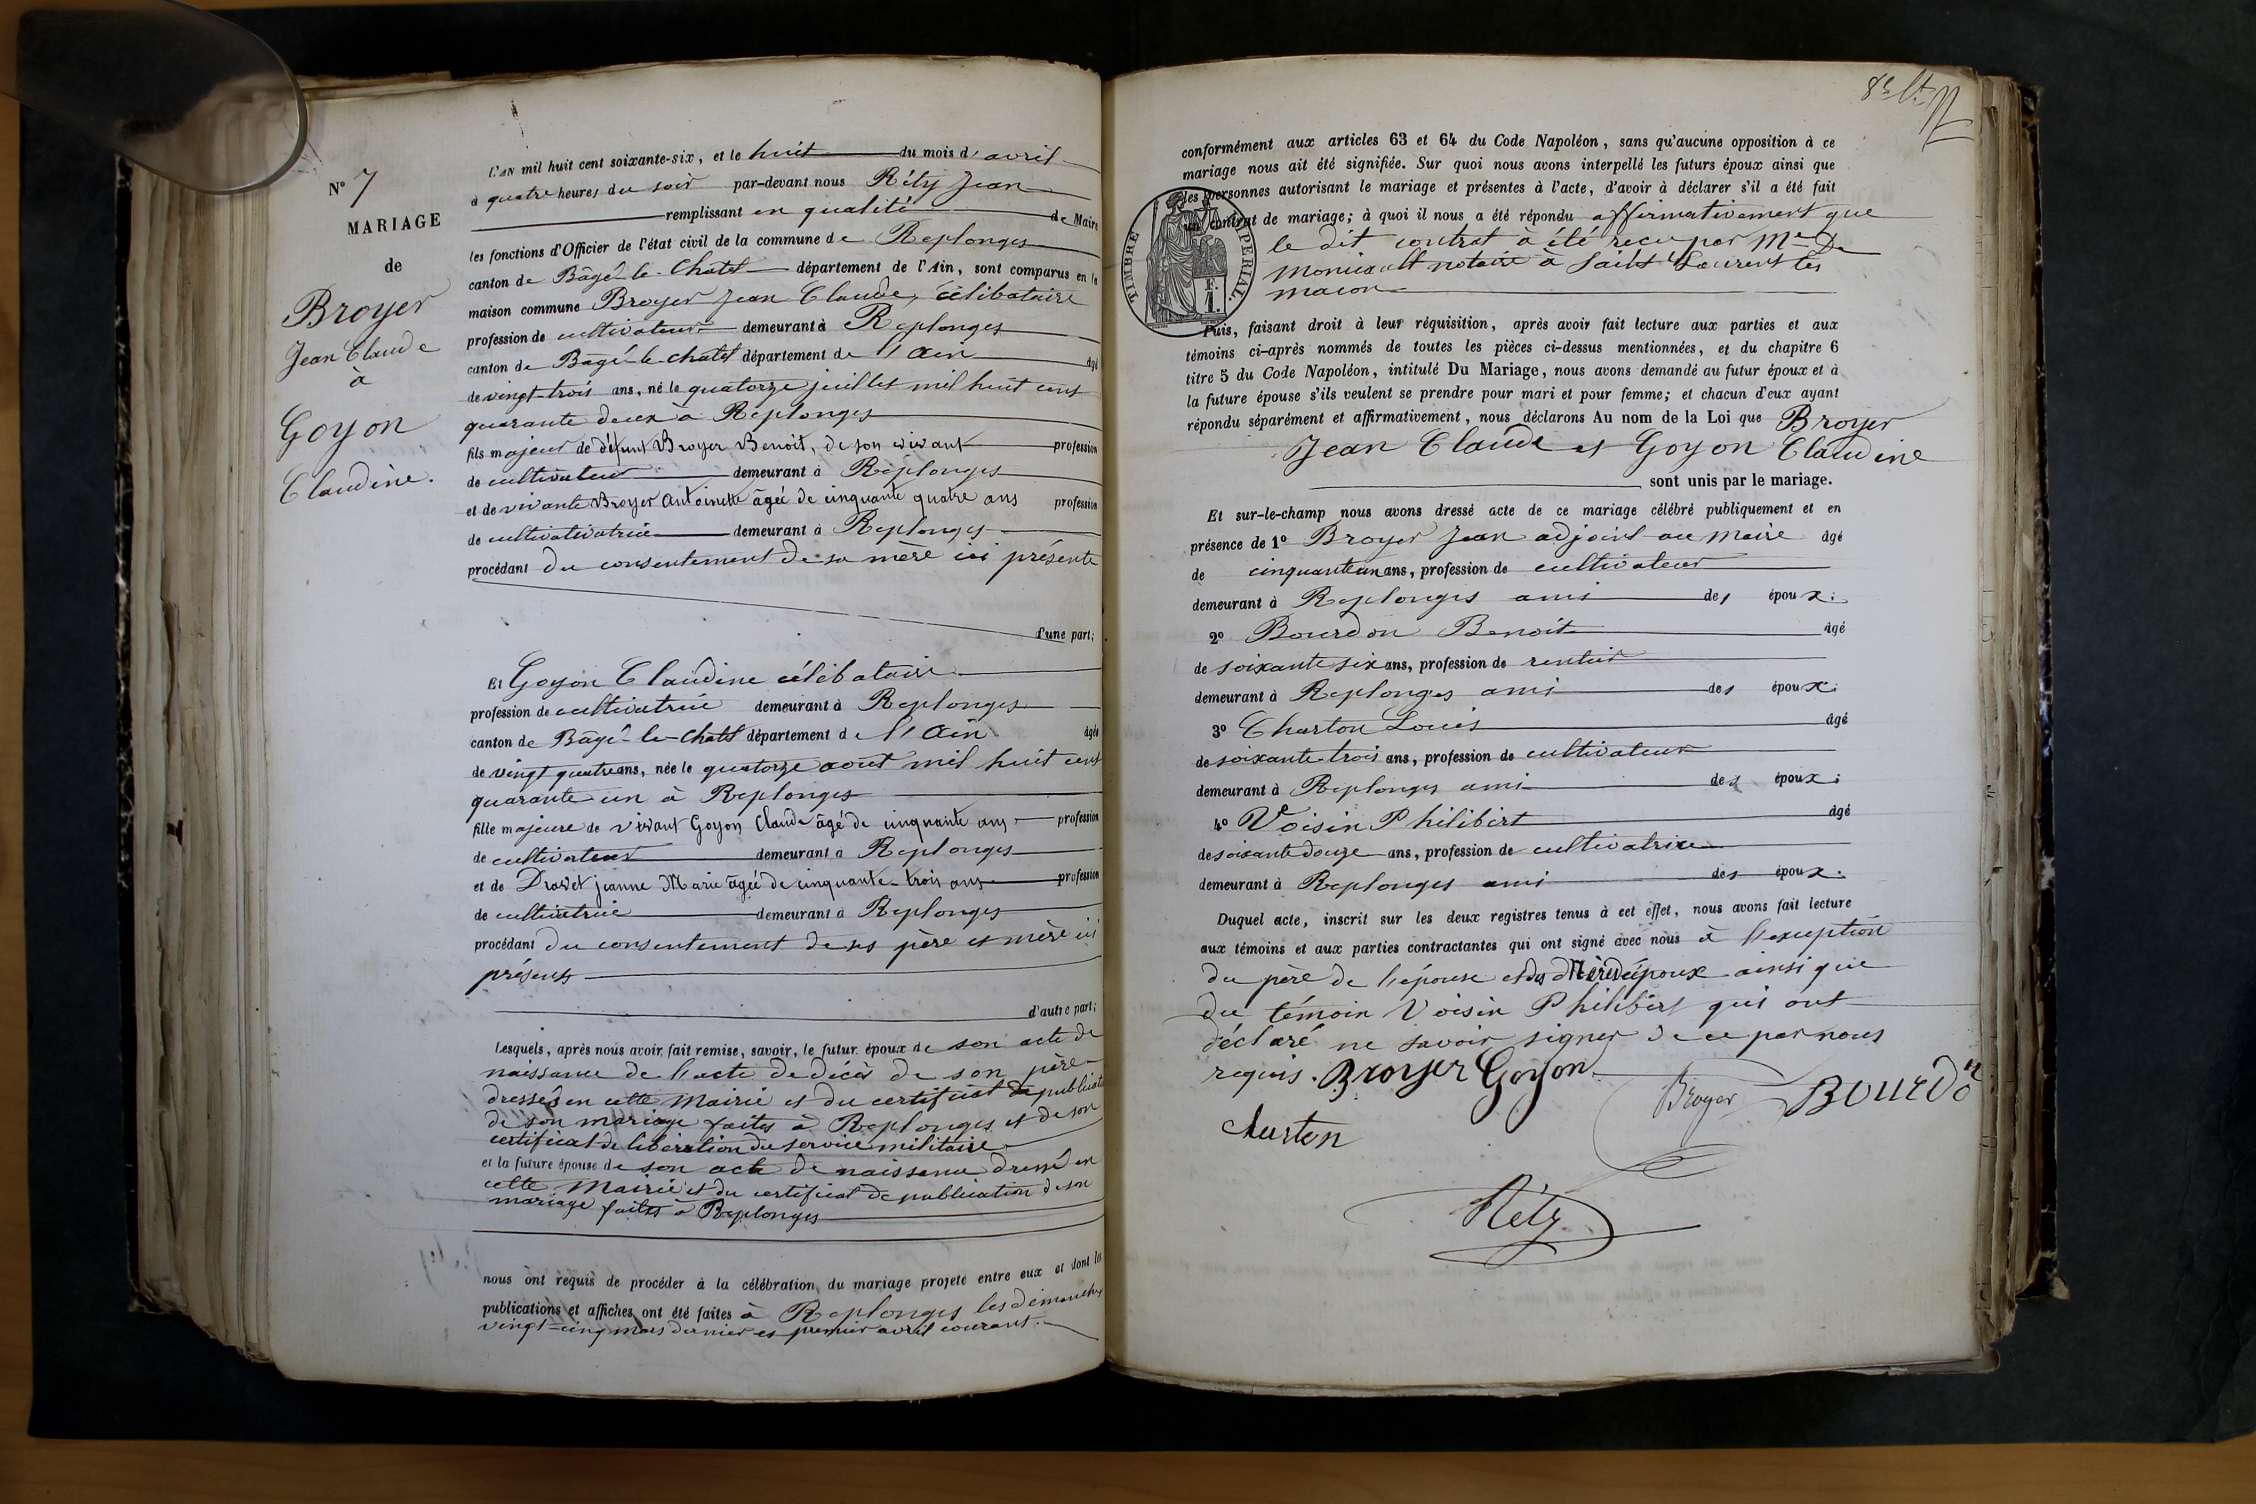 N° 7
MARIAGE
de
Broyer
Jean Claude
à
Goyon
Claudine.
L'AN mil huit cent soixante-six, et le huit du mois d'avril
à quatre heures du soir par-devant nous Réty Jean
remplissant en qualité de Maire
les fonctions d'Officier de l'état civil de la commune de Replonges
canton de Bâgé-le-Chatel département de l'Ain, sont comparus en la
maison commune Broyer Jean Claude, célibataire
profession de cultivateur demeurant à Replonges
canton de Bâgé-le-chatel département de l'Ain âgé
de vingt-trois ans, né le quatorze juillet mil huit cent
quarante deux à Replonges
fils majeur de défunt Broyer Benoit, de son vivant profession
de cultivateur demeurant à Replonges
et de vivante Broyer Antoinette âgée de cinquante quatre ans profession
de cultivativatrice demeurant à Replonges
procédant du consentement de sa mère ici présente
d'une part;
Et Goyon Claudine célibataire
profession de cultivatrice demeurant à Replonges
canton de Bâgé-le-chatel département de l'Ain âgée
de vingt quatre ans, née le quatorze aout mil huit cent
quarante un à Replonges
fille majeure de vivant Goyon Claude âgé de cinquante ans profession
de cultivateur demeurant à Replonges
et de Drovet jeanne Marie âgée de cinquante-trois ans profession
de cultivatrice demeurant à Replonges
procédant du consentement de ses père et mère ici
présents
d'autre part;
Lesquels, après nous avoir fait remise, savoir, le futur époux de son acte de
naissance de l'acte de décès de son père
dressés en cette Mairie et du certificat de publication
de son mariage faites à Replonges et de son
certificat de libération du service militaire
et la future épouse de son acte de naissance dressé en
cette Mairie et du certificat de publication de son
mariage faites à Replonges
nous ont requis de procéder à la célébration du mariage projeté entre eux et dont les
publications et affiches ont été faites à Replonges les dimanches
vingt-cinq mars dernier et premier avril courant.
conformément aux articles 63 et 64 du Code Napoléon, sans qu'aucune opposition à ce
mariage nous ait été signifiée. Sur quoi nous avons interpellé les futurs époux ainsi que
les personnes autorisant le mariage et présentes à l'acte, d'avoir à déclarer s'il a été fait
un contrat de mariage; à quoi il nous a été répondu affirmativement que
le dit contrat à été reçu par Me De
notaire à Saint Laurent les
macon
TIMBRE IMPERIAL.
F.
1.
Puis, faisant droit à leur réquisition, après avoir fait lecture aux parties et aux
témoins ci-après nommés de toutes les pièces ci-dessus mentionnées, et du chapitre 6
titre 5 du Code Napoléon, intitulé Du Mariage, nous avons demandé au futur époux et à
la future épouse s'ils veulent se prendre pour mari et pour femme; et chacun d'eux ayant
répondu séparément et affirmativement, nous déclarons Au nom de la Loi que Broyer
Jean Claude et Goyon Claudine
sont unis par le mariage.
Et sur-le-champ nous avons dressé acte de ce mariage célébré publiquement et en
présence de 1° Broyer Jean adjoint au Maire âgé
de cinquante un ans, profession de cultivateur
demeurant à Replonges ami des époux;
2° Bourdon Benoit âgé
de soixante six ans, profession de rentier
demeurant à Replonges ami des époux;
3° Charton Louis âgé
de soixante trois ans, profession de cultivateur
demeurant à Replonges ami des époux;
4° Voisin Philibert âgé
de soixante douze ans, profession de cultivatrice
demeurant à Replonges ami des époux.
Duquel acte, inscrit sur les deux registres tenus à cet effet, nous avons fait lecture
aux témoins et aux parties contractantes qui ont signé avec nous à l'exception
du père de l'épouse et des Mères d'époux ainsi que
du témoin Voisin Philibert qui ont
déclaré ne savoir signer de ce par nous
requis. Broyer Goyon
Broyer Bourdon
Charton
Réty